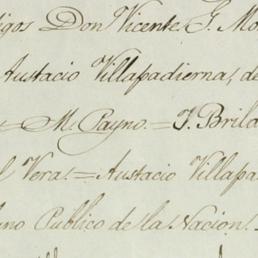 igos Don Vicente G. Mo
Austacio Villapadierna, de
M. Payno.=J. Brila
l Vera.=Austacio Villapa
no Publico de la Nacion.